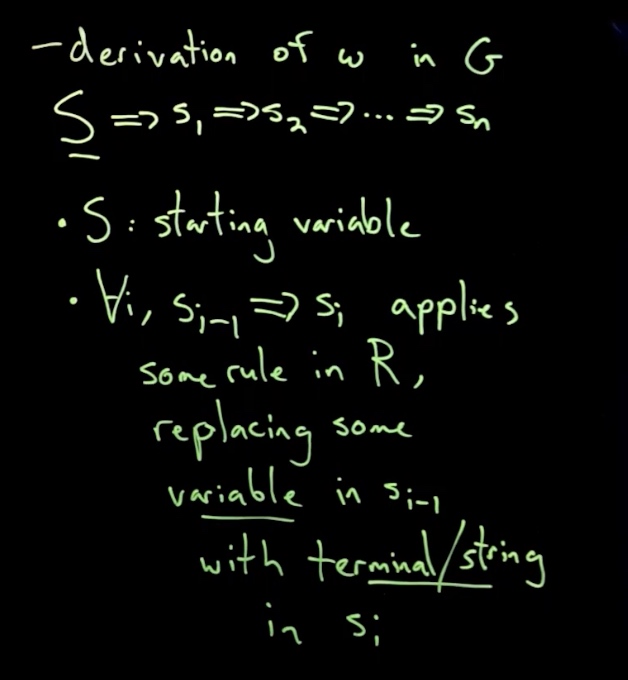 - derivation of w in G
S ⇒ s₁ ⇒ s₂ ⇒ ... ⇒ sₙ
• S : starting variable
• ∀i, sᵢ₋₁ ⇒ sᵢ applies
some rule in R,
replacing some
variable in sᵢ₋₁
with terminal/string
in sᵢ